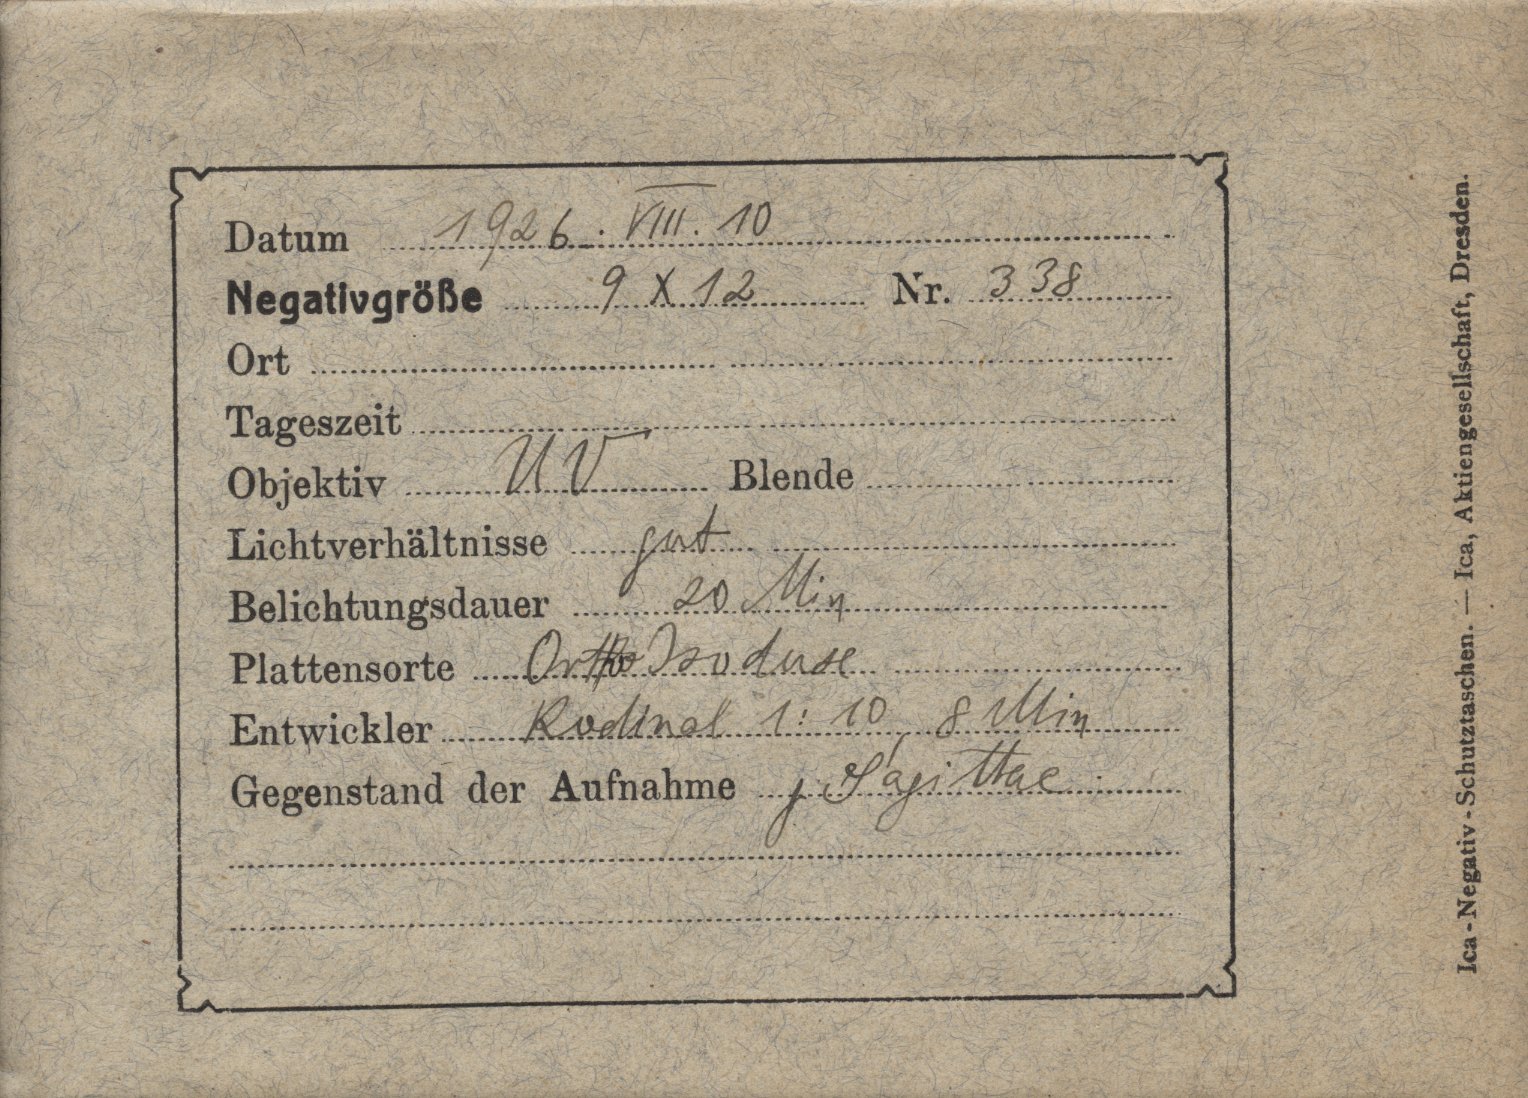 Datum 1926. VIII. 10
Negativgröße 9 X 12 Nr. 338
Ort
Tageszeit
Objektiv UV Blende
Lichtverhältnisse gut
Belichtungsdauer 20 Min
Plattensorte Ortho Isodure
Entwickler Rodinal 1:10, 8 Min
Gegenstand der Aufnahme γ Sagittae.
Ica-Negativ-Schutztaschen. — Ica, Aktiengesellschaft, Dresden.